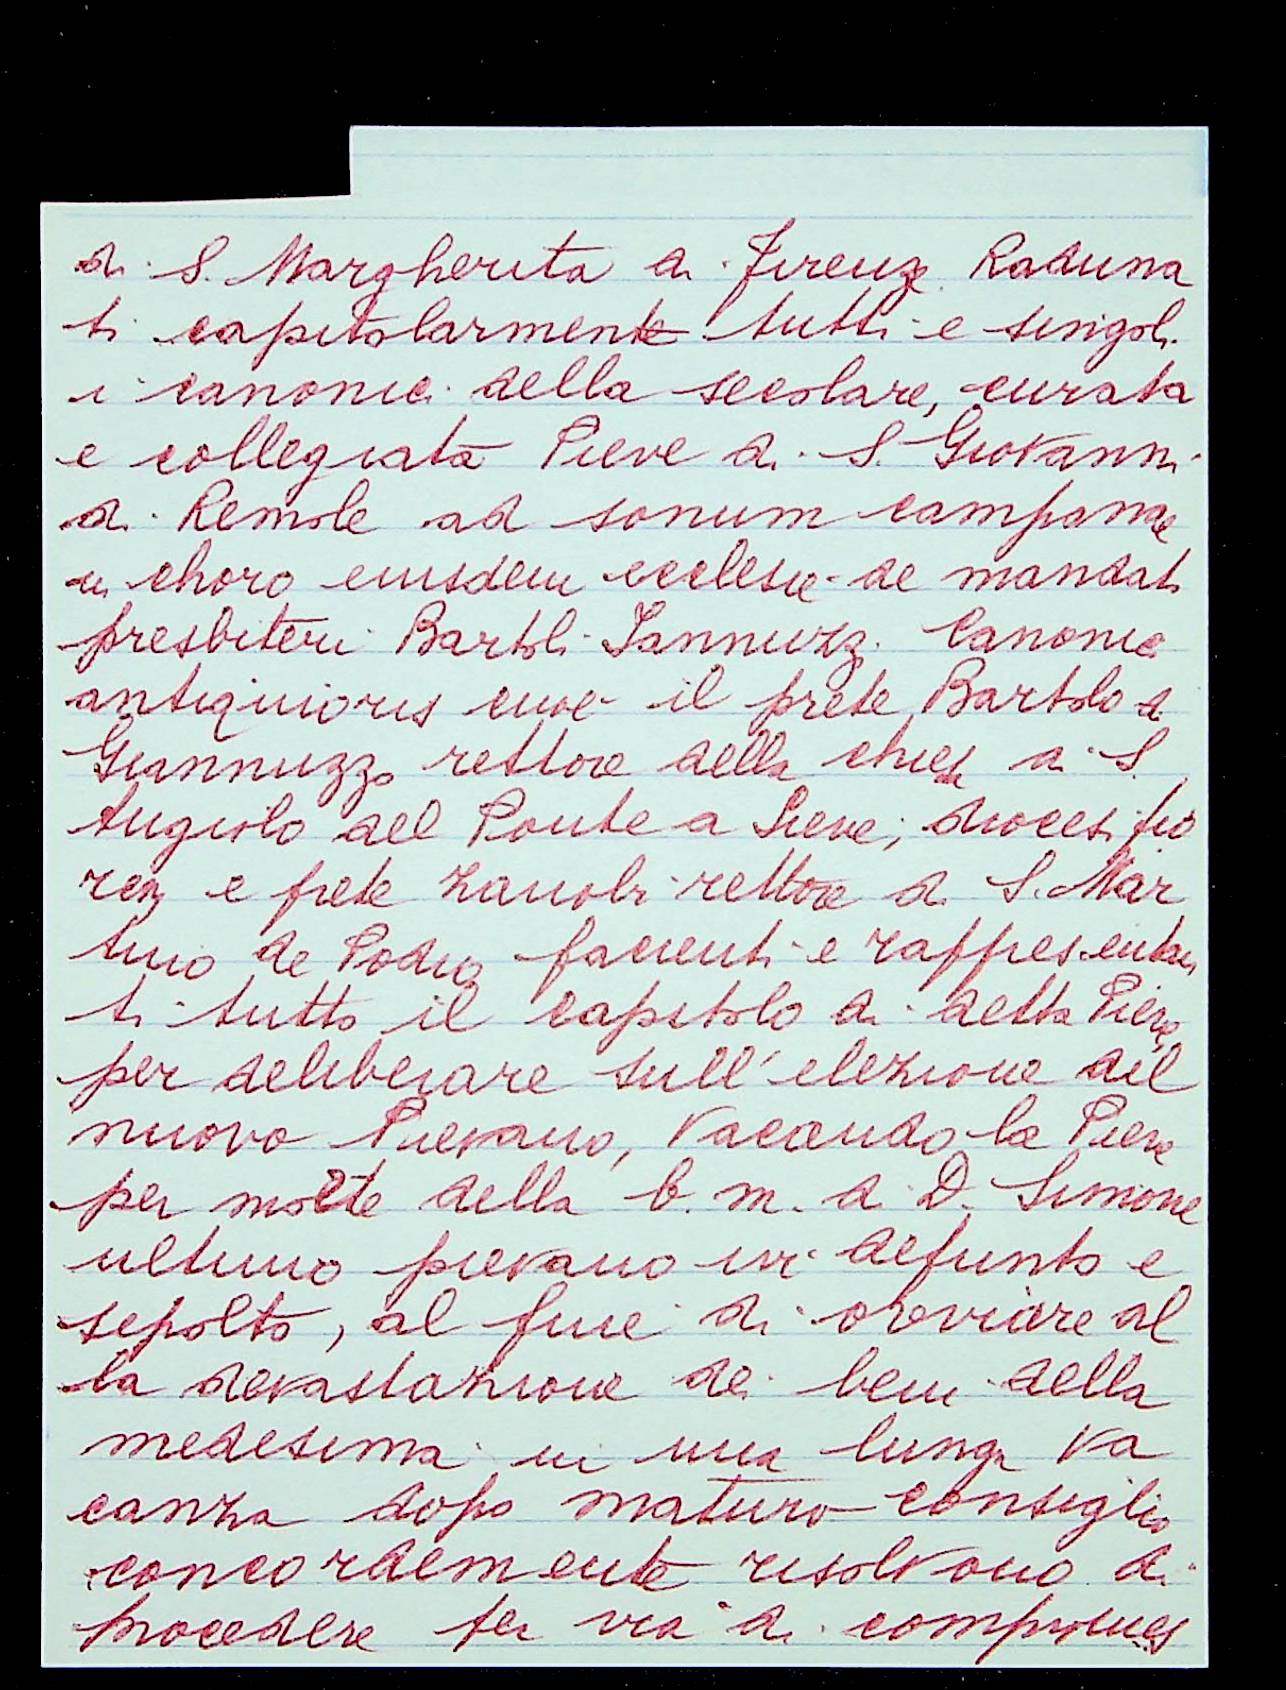 di S. Margherita di Firenze Raduna
ti capitolarmente tutti e singoli
i canonici della secolare, curata
e collegiata Pieve di S. Giovanni
di Remole ad sonum campanae
in choro eiusdem ecclesie de mandato
presbiteri Bartoli Iannuzzi Canonici
antiquioris cioè il prete Bartolo di
Giannuzzo rettore della chiesa di S.
Angiolo del Ponte a Sieve, diocesi fio
renz e prete Zanobi rettore di S. Mar
tino de Podio facienti e rappresentan
ti tutto il capitolo di detta Pieve
per deliberare sull'elezione del
nuovo Pievano, Vacando la Pieve
per morte della b. m. di D. Simone
ultimo pievano ivi defunto e
sepolto, al fine di ovviare al
la devastazione dei beni della
medesima in una lunga va
canza dopo maturo consiglio
concordemente risolvono di
procedere per via di compromes